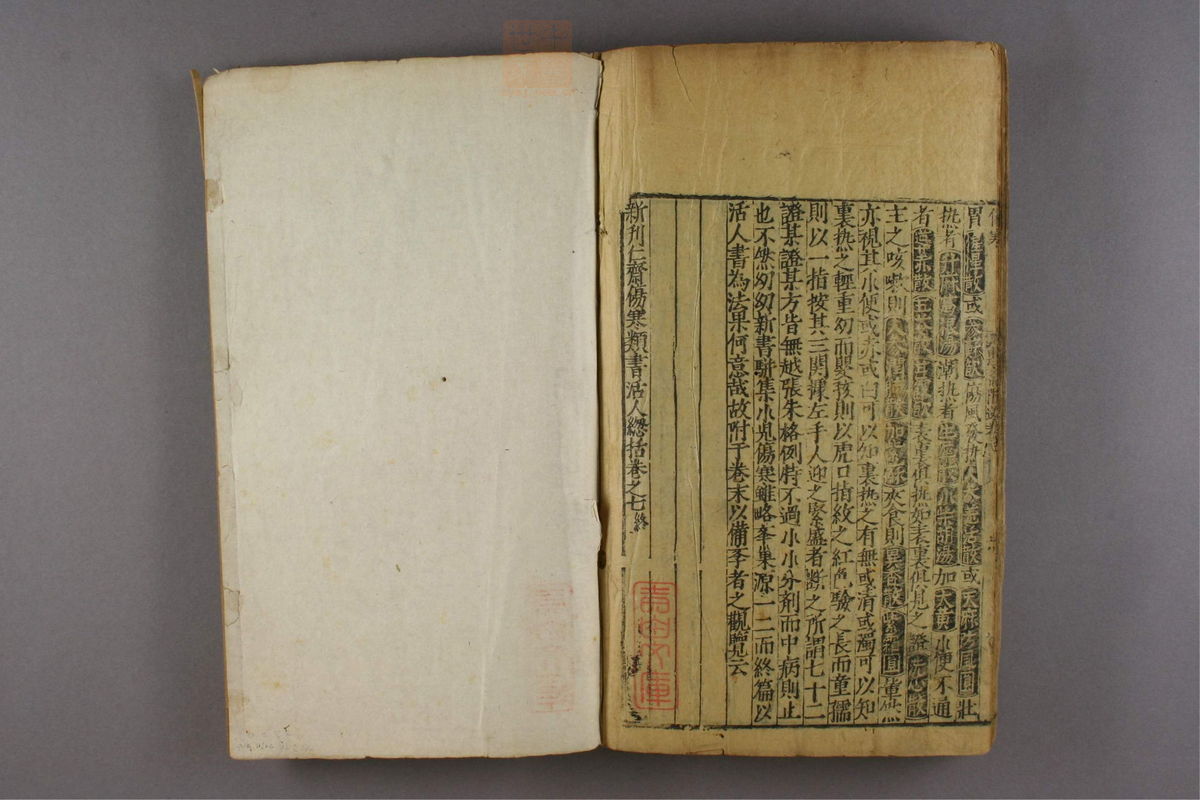 胃惺惺散或參蘇飲傷風發熱人參羌活散或天麻防風圓壯
熱者升麻葛根湯潮熱者生犀散小柴胡湯加大黃小便不通
者導赤散五苓散表裏俱熱如表裏俱見之證洗心散
主之咳嗽則人參夾食則紫霜圓薰然
亦視其小便或赤或白可以知裏熱之有無或清或濁可以知
裏熱之輕重幼而嬰孩則以虎口指紋之紅色驗之長而童孺
則以一指按其三關據左手人迎之緊盛者斷之所謂七十二
證某證某方皆無越張朱格例特不過小小分劑而中病則止
也不然幼幼新書駢集小兒傷寒雖略李巢源一二而終篇以
活人書為法果何意哉故附于卷末以備李者之觀覽云
新刊仁齋傷寒類書活人總括卷之七終
文庫